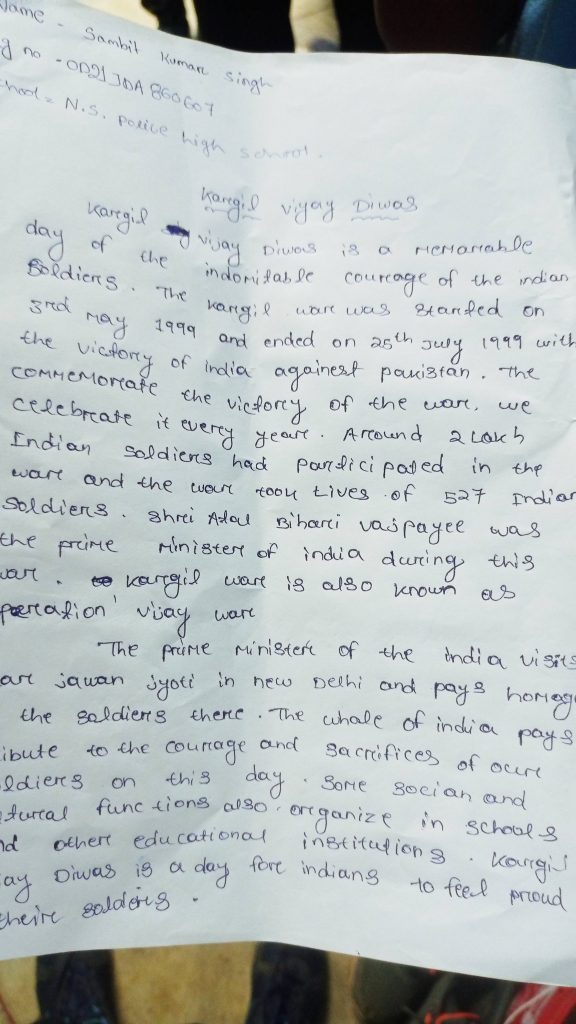 Name - Sambit Kumar Singh
g no - OD21JDA860607
hool = N.S. Police high school.
Kargil vijay Diwas
Kargil vijay Diwas is a memoriable
day of the indomitable courage of the indian
Soldiers. The Kargil ware was started on
3rd May 1999 and ended on 26th July 1999 with
the victory of india against pakistan. The
commemorate the victory of the ware, we
celebrate it every yeare. Around 2 lakh
Indian Soldiers had participated in the
ware and the ware took Lives of 527 Indian
Soldiers. Shri Atal Bihari vajpayee was
the prime Minister of india during this
ware. Kargil ware is also known as
peration 'vijay ware
The prime Minister of the india visits
are jawan jyoti in new Delhi and pays homag
the soldiers there. The whole of india pays
ibute to the courage and sacrifices of oure
ldiers on this day. Some socian and
tural functions also organize in schools
nd other educational institutions. Kargil
ay Diwas is a day fore indians to feel proud
theire solders.